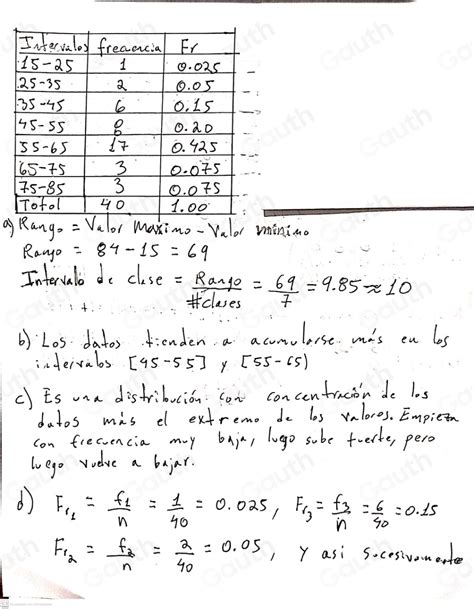 Intervalos frecuencia Fr
15-25 1 0.025
25-35 2 0.05
35-45 6 0.15
45-55 8 0.20
55-65 17 0.425
65-75 3 0.075
75-85 3 0.075
Total 40 1.00
a) Rango = Valor maximo - Valor minimo
Rango = 84 - 15 = 69
Intervalo de clase = Rango / #clases = 69 / 7 = 9.85 ≈ 10
b) Los datos tienden a acumularse más en los
intervalos [45-55] y [55-65)
c) Es una distribución con concentración de los
datos más el extremo de los valores. Empieza
con frecuencia muy baja, luego sube fuerte, pero
luego vuelve a bajar.
d) Fr1 = f1 / n = 1 / 40 = 0.025, Fr3 = f3 / n = 6 / 40 = 0.15
Fr2 = f2 / n = 2 / 40 = 0.05, y asi sucesivamente
Gauth